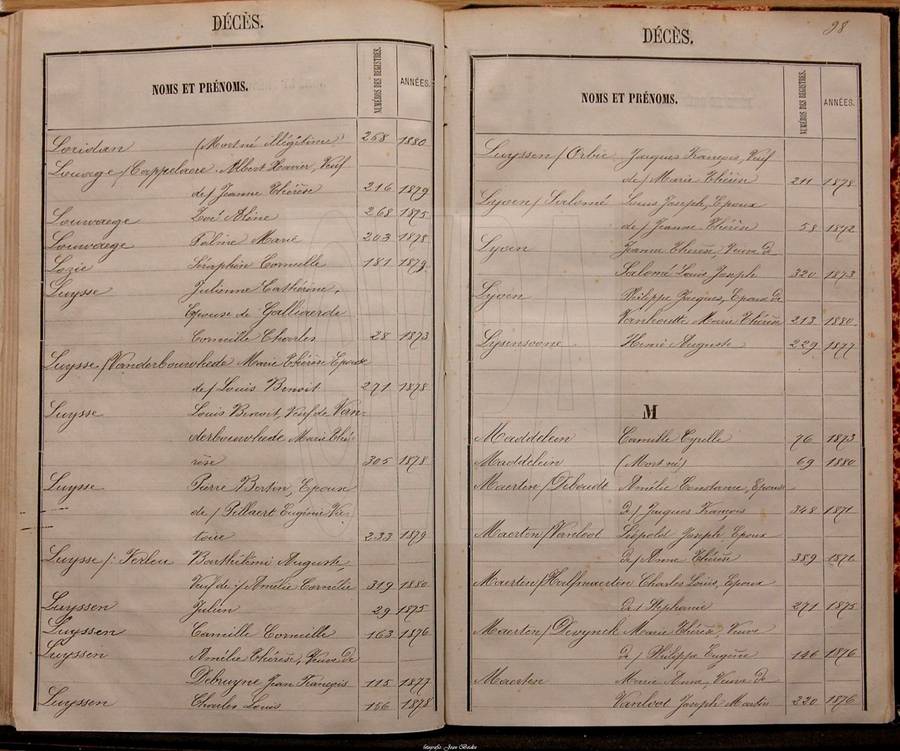 DÉCÈS.
NOMS ET PRÉNOMS. NUMÉROS DES REGISTRES. ANNÉES.
Loridan (Mort né illégitime) 268 1880
Louage /Cappelaere Albert Xavier, Veuf
de / Jeanne Thérèse 216 1879
Louwaege Zoé Aline 268 1875
Louwaege Palmé Marie 203 1878
Lozie Séraphin Corneille 181 1879
Luysse Julienne Cathérine,
Epouse de Gallewaerde
Corneille Charles 28 1873
Luysse/Vanderbouwhede Marie Thérèse Epouse
de/ Louis Benoit 271 1878
Luysse Louis Benoit, Veuf de Van-
derbouwhede Marie Thé-
rèse 305 1878
Luysse Pierre Bertin, Epoux
de / Pellaert Eugénie Vic-
toire 233 1879
Luysse /: Verleu Barthélémi Auguste,
Veuf de :/ Amélie Cornélie 319 1880
Luyssen Julien 29 1875
Luyssen Camille Corneille 163 1876
Luyssen Amélie Thérèse, Veuve de
Debruyne Jean François 115 1877
Luyssen Charles Louis 156 1878
98
DÉCÈS.
NOMS ET PRÉNOMS. NUMÉROS DES REGISTRES. ANNÉES.
Luyssen / Orbie Jacques François, Veuf
de / Marie Thérèse 211 1878
Lyoen / Salomé Louis Joseph, Epoux
de / Jeanne Thérèse 58 1872
Lyoen Jeanne Thérèse, Veuve de
Salomé Louis Joseph 320 1873
Lyoen Philippe Jacques, Epoux de
Vanhoutte Marie Thérèse 213 1880
Lysensoone Henri Auguste 229 1877
M
Maddelein Camille Cyrille 76 1873
Maddelein (Mort né) 69 1880
Maerten / Deboudt Amélie Constance, Epouse
de / Jacques François 348 1871
Maerten/Vanloot Léopold Joseph, Epoux
de / Anne Thérèse 389 1871
Maerten/Halfmaerten Charles Louis, Epoux
de / Stéphanie 271 1875
Maerten / Devynck Marie Thérèse, Veuve
de / Philippe Eugène 146 1876
Maerten Marie Anne, Veuve de
Vanloot Joseph Martin 330 1876